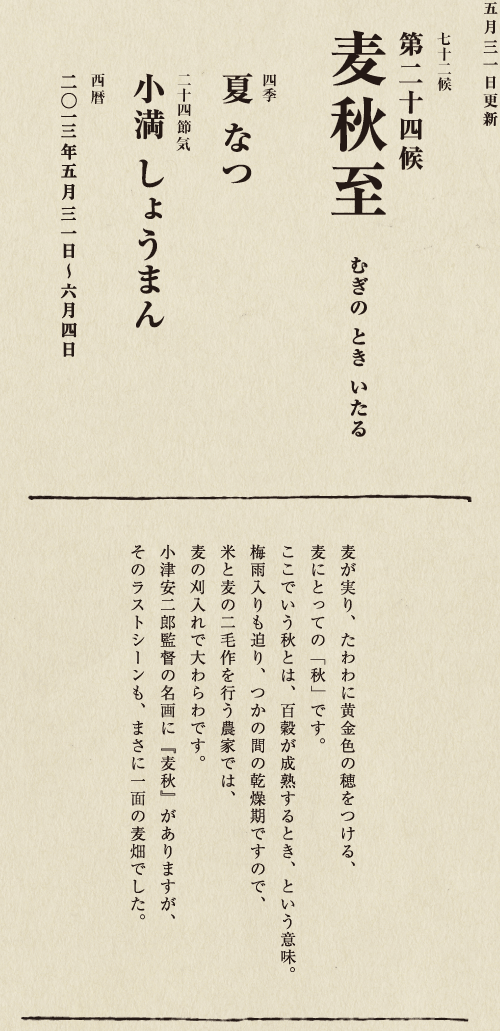 五月三一日更新
七十二候
第二十四候
麦秋至 むぎの とき いたる
四季
夏 なつ
二十四節気
小満 しょうまん
西暦
二〇一三年五月三一日〜六月四日
麦が実り、たわわに黄金色の穂をつける、
麦にとっての「秋」です。
ここでいう秋とは、百穀が成熟するとき、という意味。
梅雨入りも迫り、つかの間の乾燥期ですので、
米と麦の二毛作を行う農家では、
麦の刈入れで大わらわです。
小津安二郎監督の名画に『麦秋』がありますが、
そのラストシーンも、まさに一面の麦畑でした。